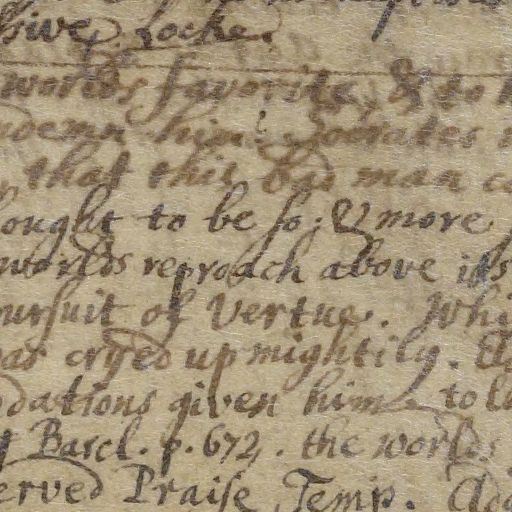 Locke.
worlds favorite, & to
him. Socrates
that this bad man
ought to be so; & more
worlds reproach above its
pursuit of Vertue. Whi
as cryed up mightily.
dations given him to
Barcl. p. 672. the worlds
erved Praise, Temp.